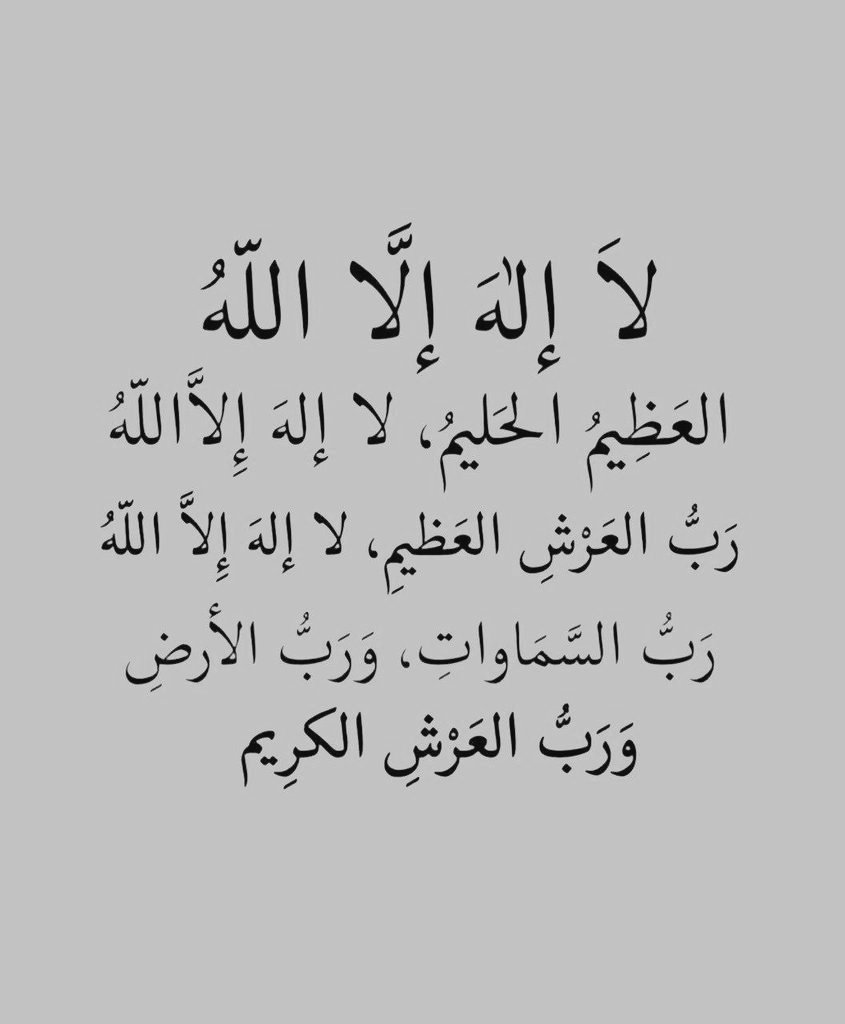 لاَ إِلٰهَ إِلَّا اللّهُ
العَظِيمُ الحَليمُ، لا إلهَ إِلاَّاللّهُ
رَبُّ العَرْشِ العَظيمِ، لا إلهَ إِلاَّ اللّهُ
رَبُّ السَّمَاواتِ، وَرَبُّ الأرضِ
وَرَبُّ العَرْشِ الكرِيم